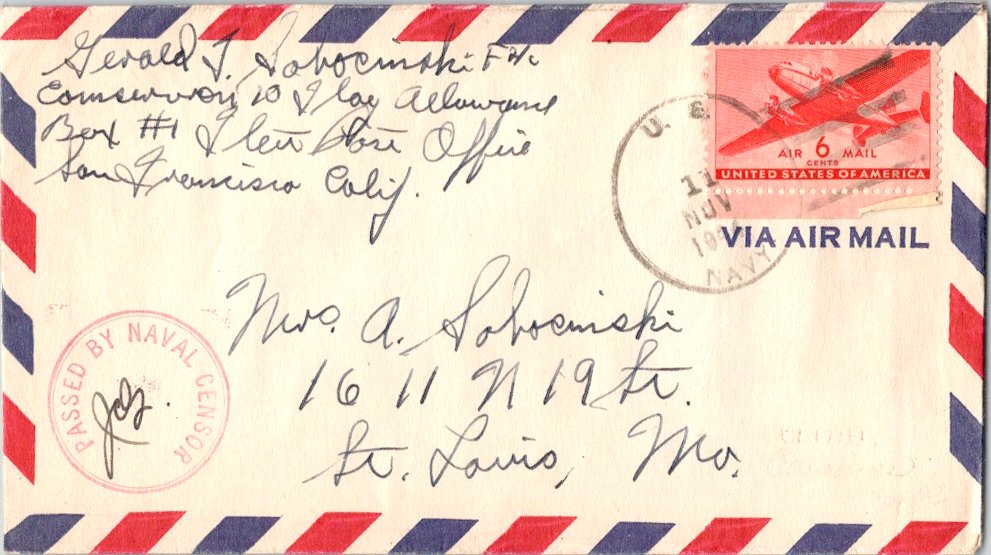 Gerald J. Sobocinski F 2/c
Comservron 10 Flag Allowance
Box #1 Fleet Post Office
San Francisco Calif.
U. S.
11
NOV
NAVY
AIR 6 MAIL
CENTS
UNITED STATES OF AMERICA
VIA AIR MAIL
Mrs. A. Sobocinski
1611 N 19 St.
St. Louis, Mo.
PASSED BY NAVAL CENSOR